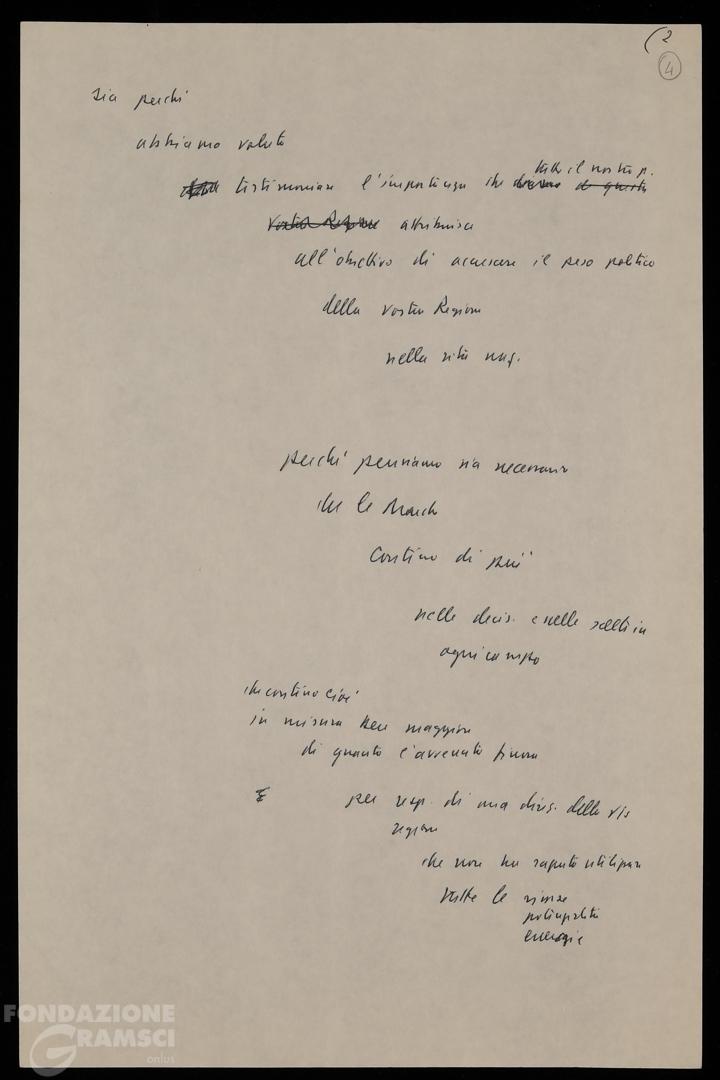 (2
4
sia perché
abbiamo voluto
tutto il nostro p.
testimoniare l'importanza che di questa
vostra Regione attribuisce
all'obiettivo di accrescere il peso politico
della vostra Regione
nella vita naz.
perché pensiamo sia necessario
che le Marche
contino di più
nelle decis. e nelle scelte in
ogni campo
che contino cioè
in misura ben maggiore
di quanto è avvenuto finora
E per resp. di una direz. della vs
regione
che non ha saputo utilizzare
tutte le risorse
potenzialità
energie
FONDAZIONE
GRAMSCI
onlus